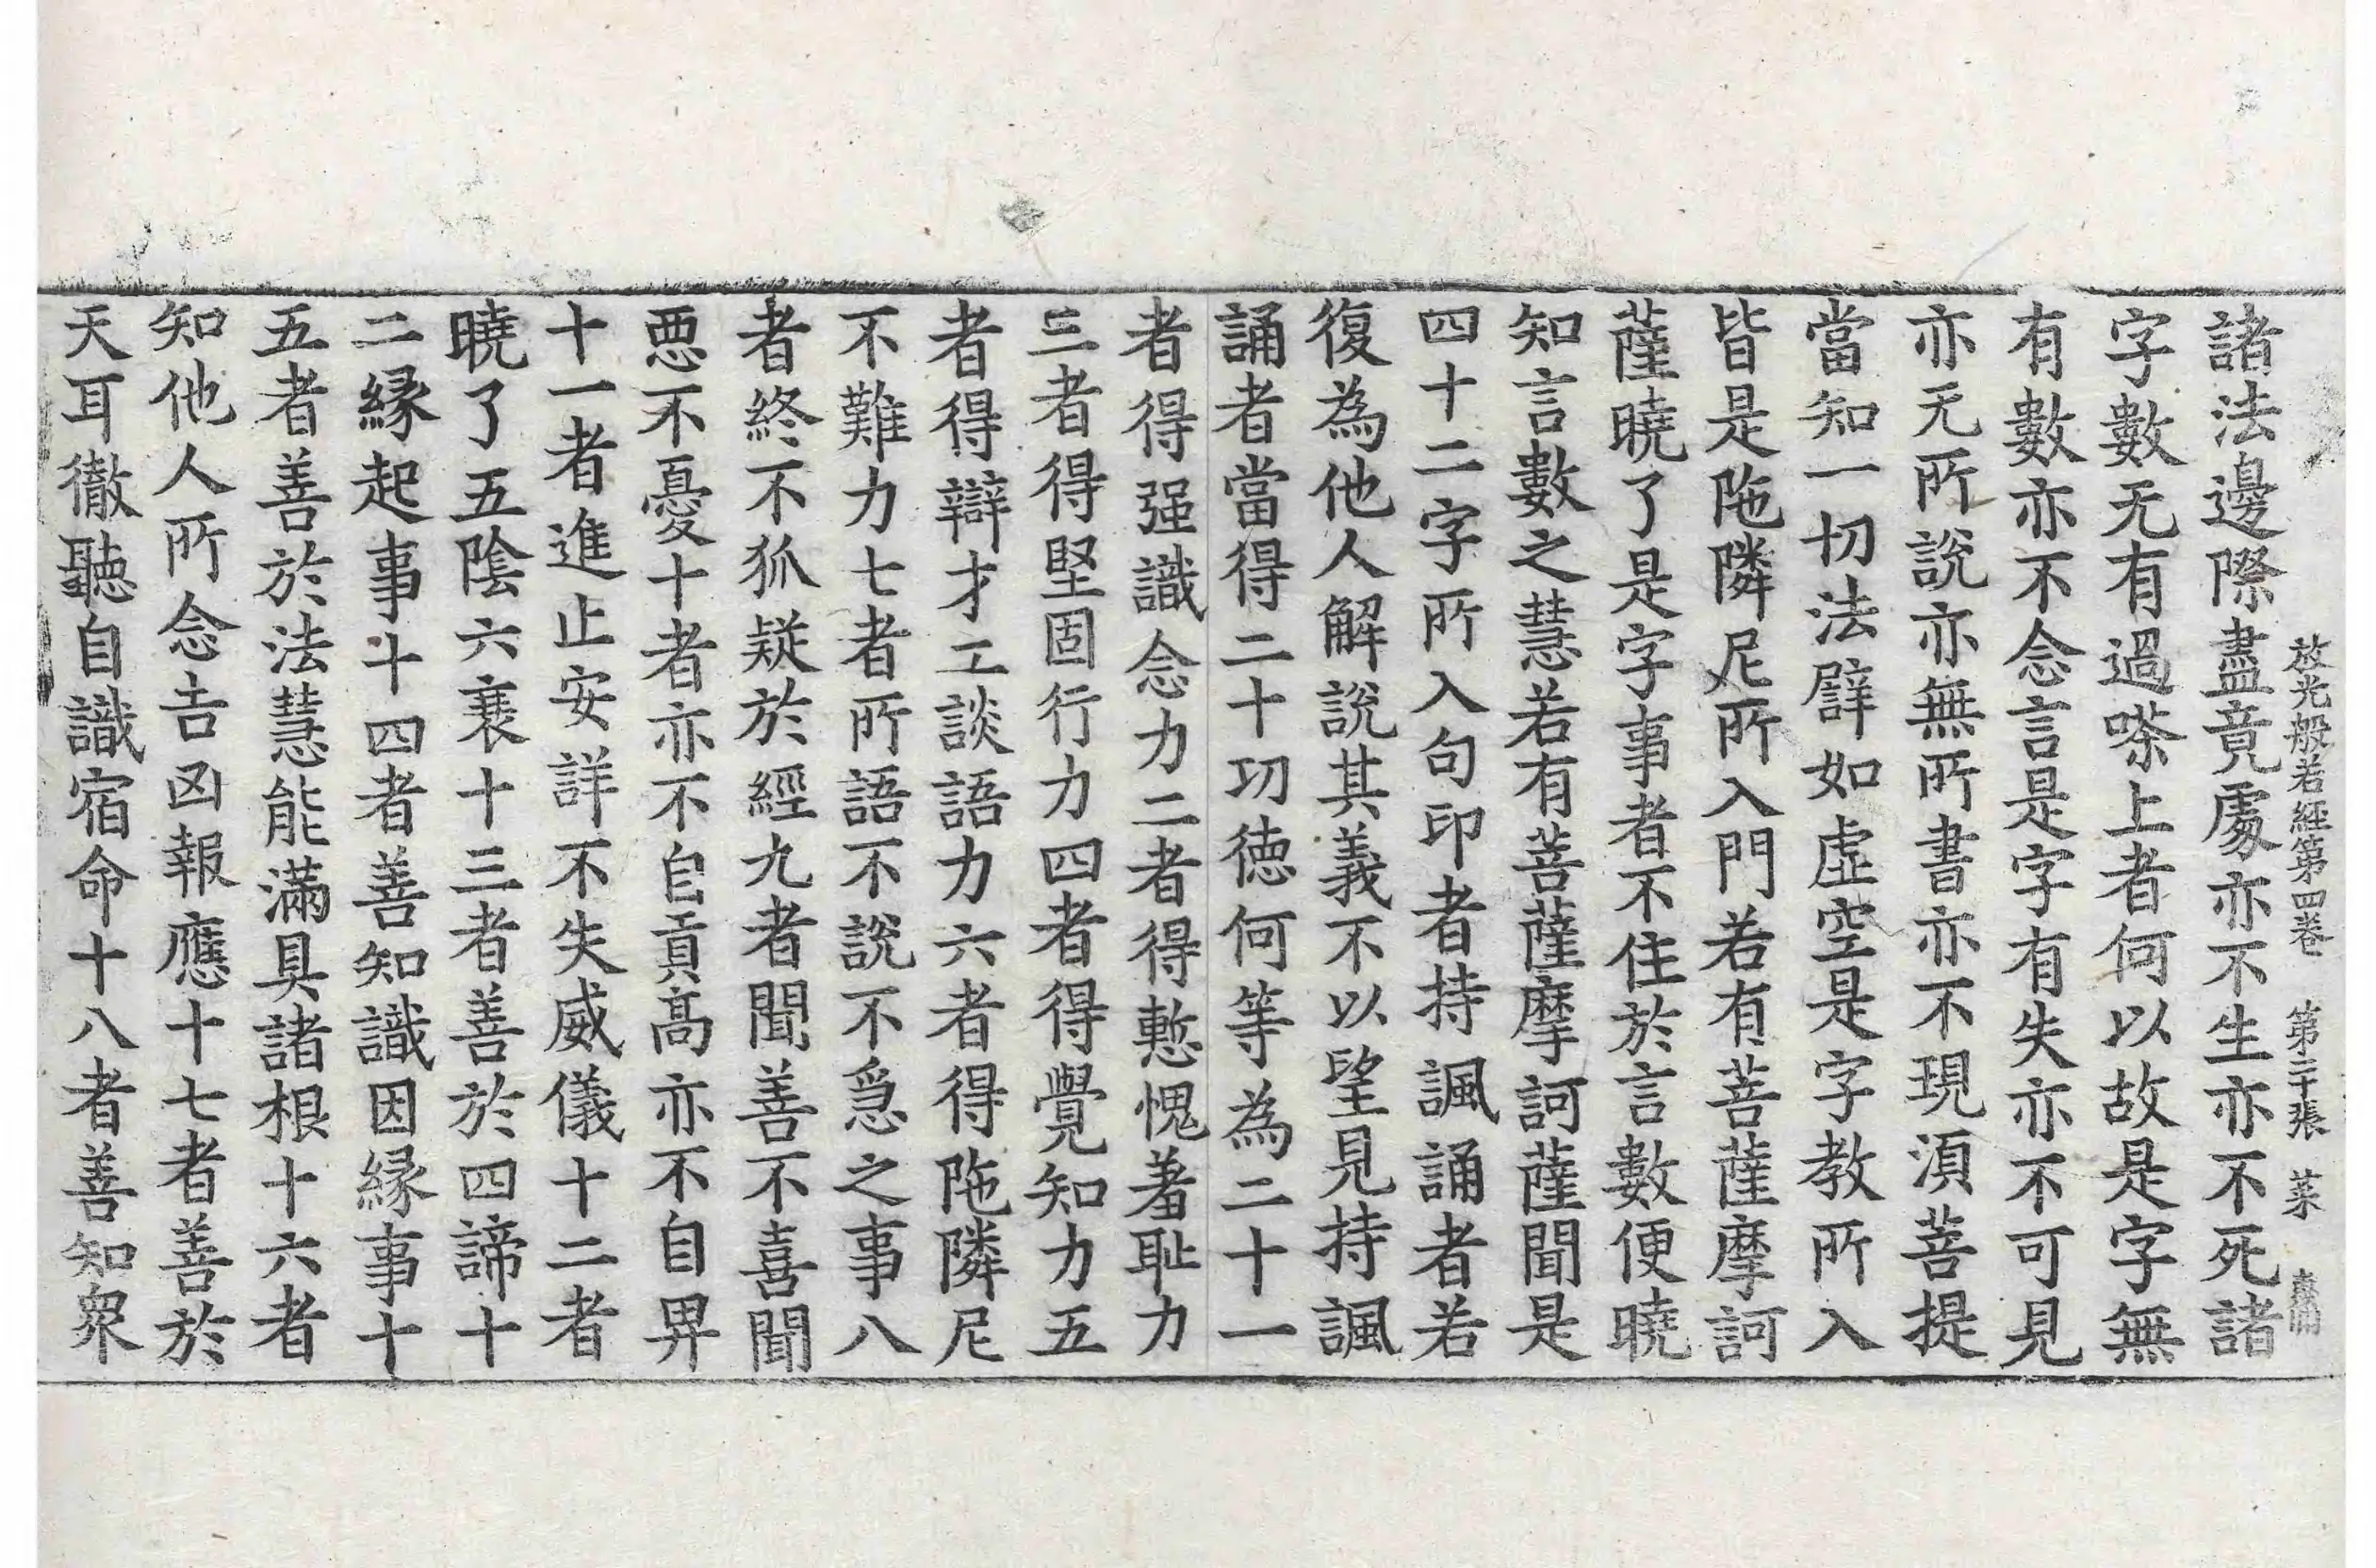 放光般若經第四卷 第二十張 菜
諸法邊際盡竟處亦不生亦不死諸
字數无有過嗏上者何以故是字無
有數亦不念言是字有失亦不可見
亦无所說亦無所書亦不現湏菩提
當知一切法譬如虛空是字教所入
皆是陁隣尼所入門若有菩薩摩訶
薩曉了是字事者不住於言數便曉
知言數之慧若有菩薩摩訶薩聞是
四十二字所入句印者持諷誦者若
復為他人解說其義不以望見持諷
誦者當得二十功德何等為二十一
者得强識念力二者得慙愧羞耻力
三者得堅固行力四者得覺知力五
者得辯才工談語力六者得陁隣尼
不難力七者所語不說不急之事八
者終不狐疑於經九者聞善不喜聞
惡不憂十者亦不自貢高亦不自畀
十一者進止安詳不失威儀十二者
曉了五陰六衰十三者善於四諦十
二緣起事十四者善知識因緣事十
五者善於法慧能滿具諸根十六者
知他人所念吉凶報應十七者善於
天耳徹聽自識宿命十八者善知衆